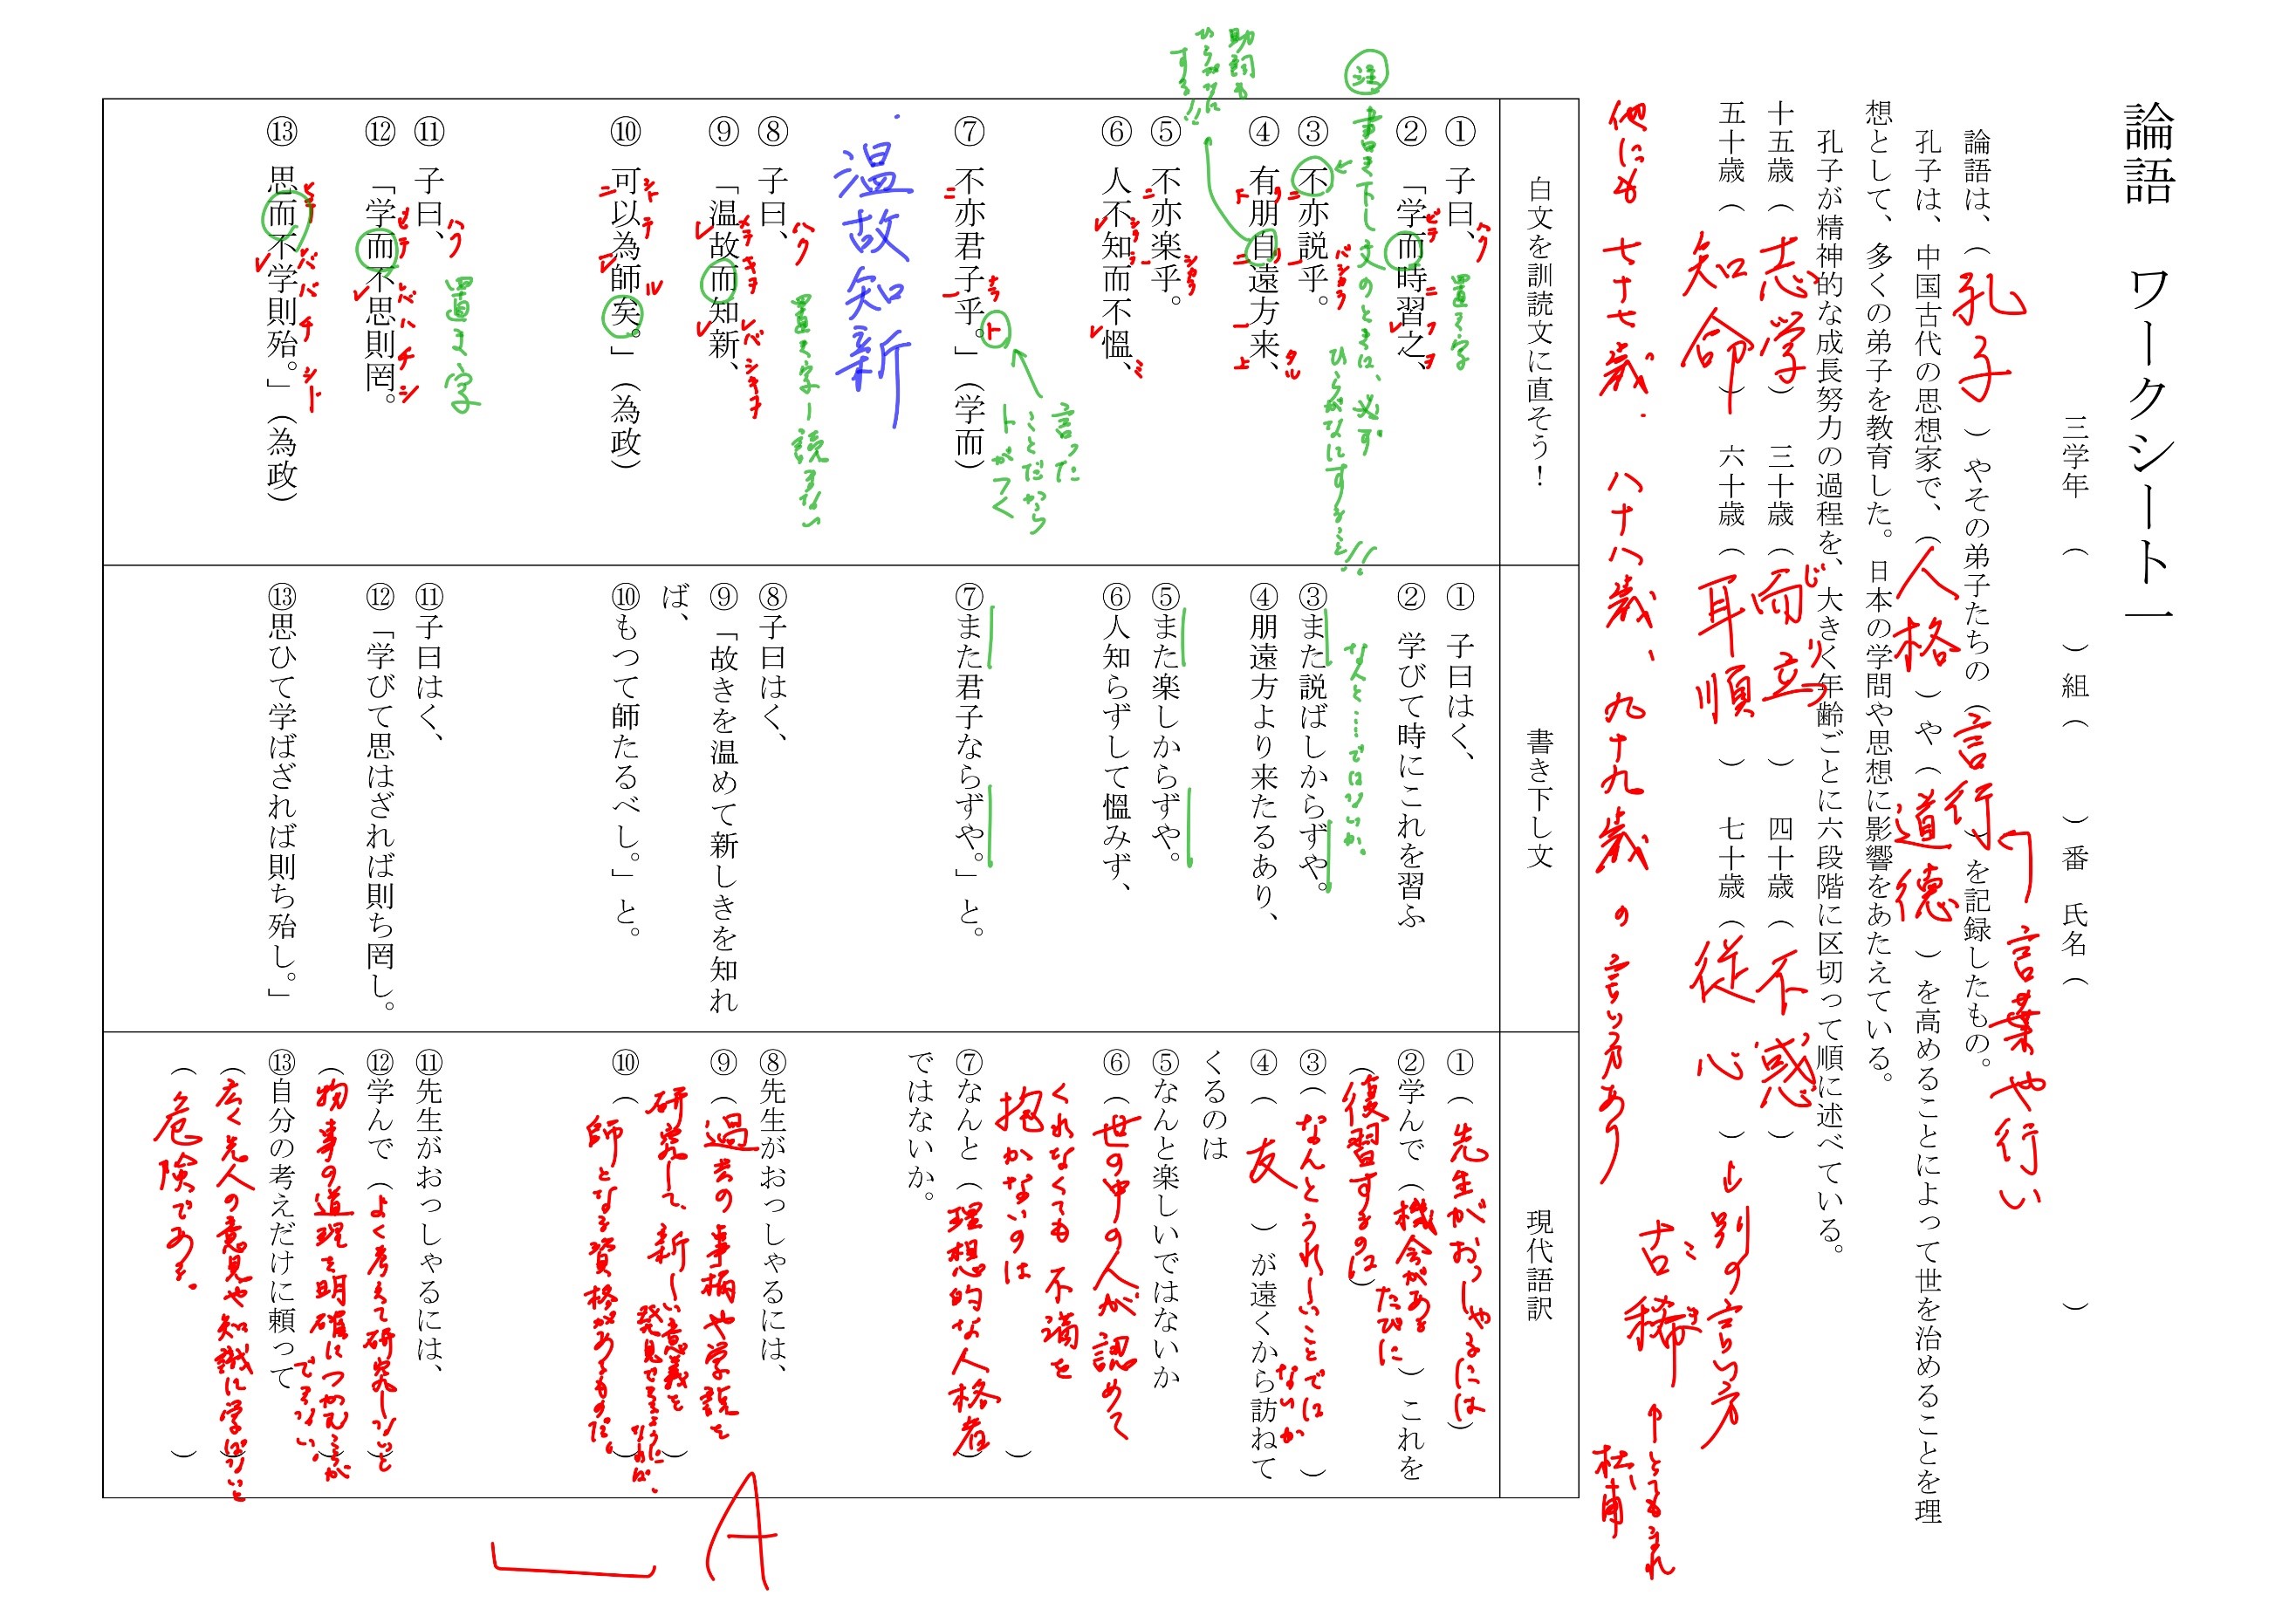 論語　ワークシート一
三学年　（　　　）組（　　　）番　氏名（　　　　　　　　　　）
言葉や行い
論語は、（孔子）やその弟子たちの（言行）を記録したもの。
孔子は、中国古代の思想家で、（人格）や（道徳）を高めることによって世を治めることを理
想として、多くの弟子を教育した。日本の学問や思想に影響をあたえている。
孔子が精神的な成長努力の過程を、大きく年齢ごとに六段階に区切って順に述べている。
十五歳（志学）　三十歳（而立）　四十歳（不惑）
じ　りつ
五十歳（知命）　六十歳（耳順）　七十歳（従心）→別の言い方
古稀
杜甫
他にも　七十七歳、八十八歳、九十九歳の言い方あり
白文を訓読文に直そう！
①　子曰、
ハク
置き字
②　「学而時習之、
ビテ　ニ　フ　ヲ
注　書き下し文のときは、必ずひらがなにする!!
③　不亦説乎。
④　有朋自遠方来、
助詞もひらがなにする!!
⑤　不亦楽乎。
⑥　人不知而不慍、
⑦　不亦君子乎。」（学而）
ト
言ったことだからトがつく
温故知新
⑧　子曰、
ハク
置き字ー読まない
⑨　「温故而知新、
⑩　可以為師矣。」（為政）
⑪　子曰、
ハク
置き字
⑫　「学而不思則罔。
⑬　思而不学則殆。」（為政）
書き下し文
①　子曰はく、
②　学びて時にこれを習ふ
なんと…ではないか。
③また説ばしからずや。
④朋遠方より来たるあり、
⑤また楽しからずや。
⑥人知らずして慍みず、
⑦また君子ならずや。」と。
⑧子曰はく、
⑨「故きを温めて新しきを知れ
ば、
⑩もつて師たるべし。」と。
⑪子曰はく、
⑫「学びて思はざれば則ち罔し。
⑬思ひて学ばざれば則ち殆し。」
現代語訳
①（先生がおっしゃるには）
②学んで（機会があるたびに）これを
（復習するのは）
③（なんとうれしいことではないか）
④（友）が遠くから訪ねて
くるのは
⑤なんと楽しいではないか
⑥（世の中の人が認めて
くれなくても不満を
抱かないのは）
⑦なんと（理想的な人格者）
ではないか。
⑧先生がおっしゃるには、
⑨（過去の事柄や学説を
研究して、新しい意義を発見できるようになれば、）
⑩（師となる資格があるものだ。）
⑪先生がおっしゃるには、
⑫学んで（よく考えて研究しないと）
（物事の道理を明確につかむことができない。）
⑬自分の考えだけに頼って
（広く先人の意見や知識に学ばないと
（危険である。）
A